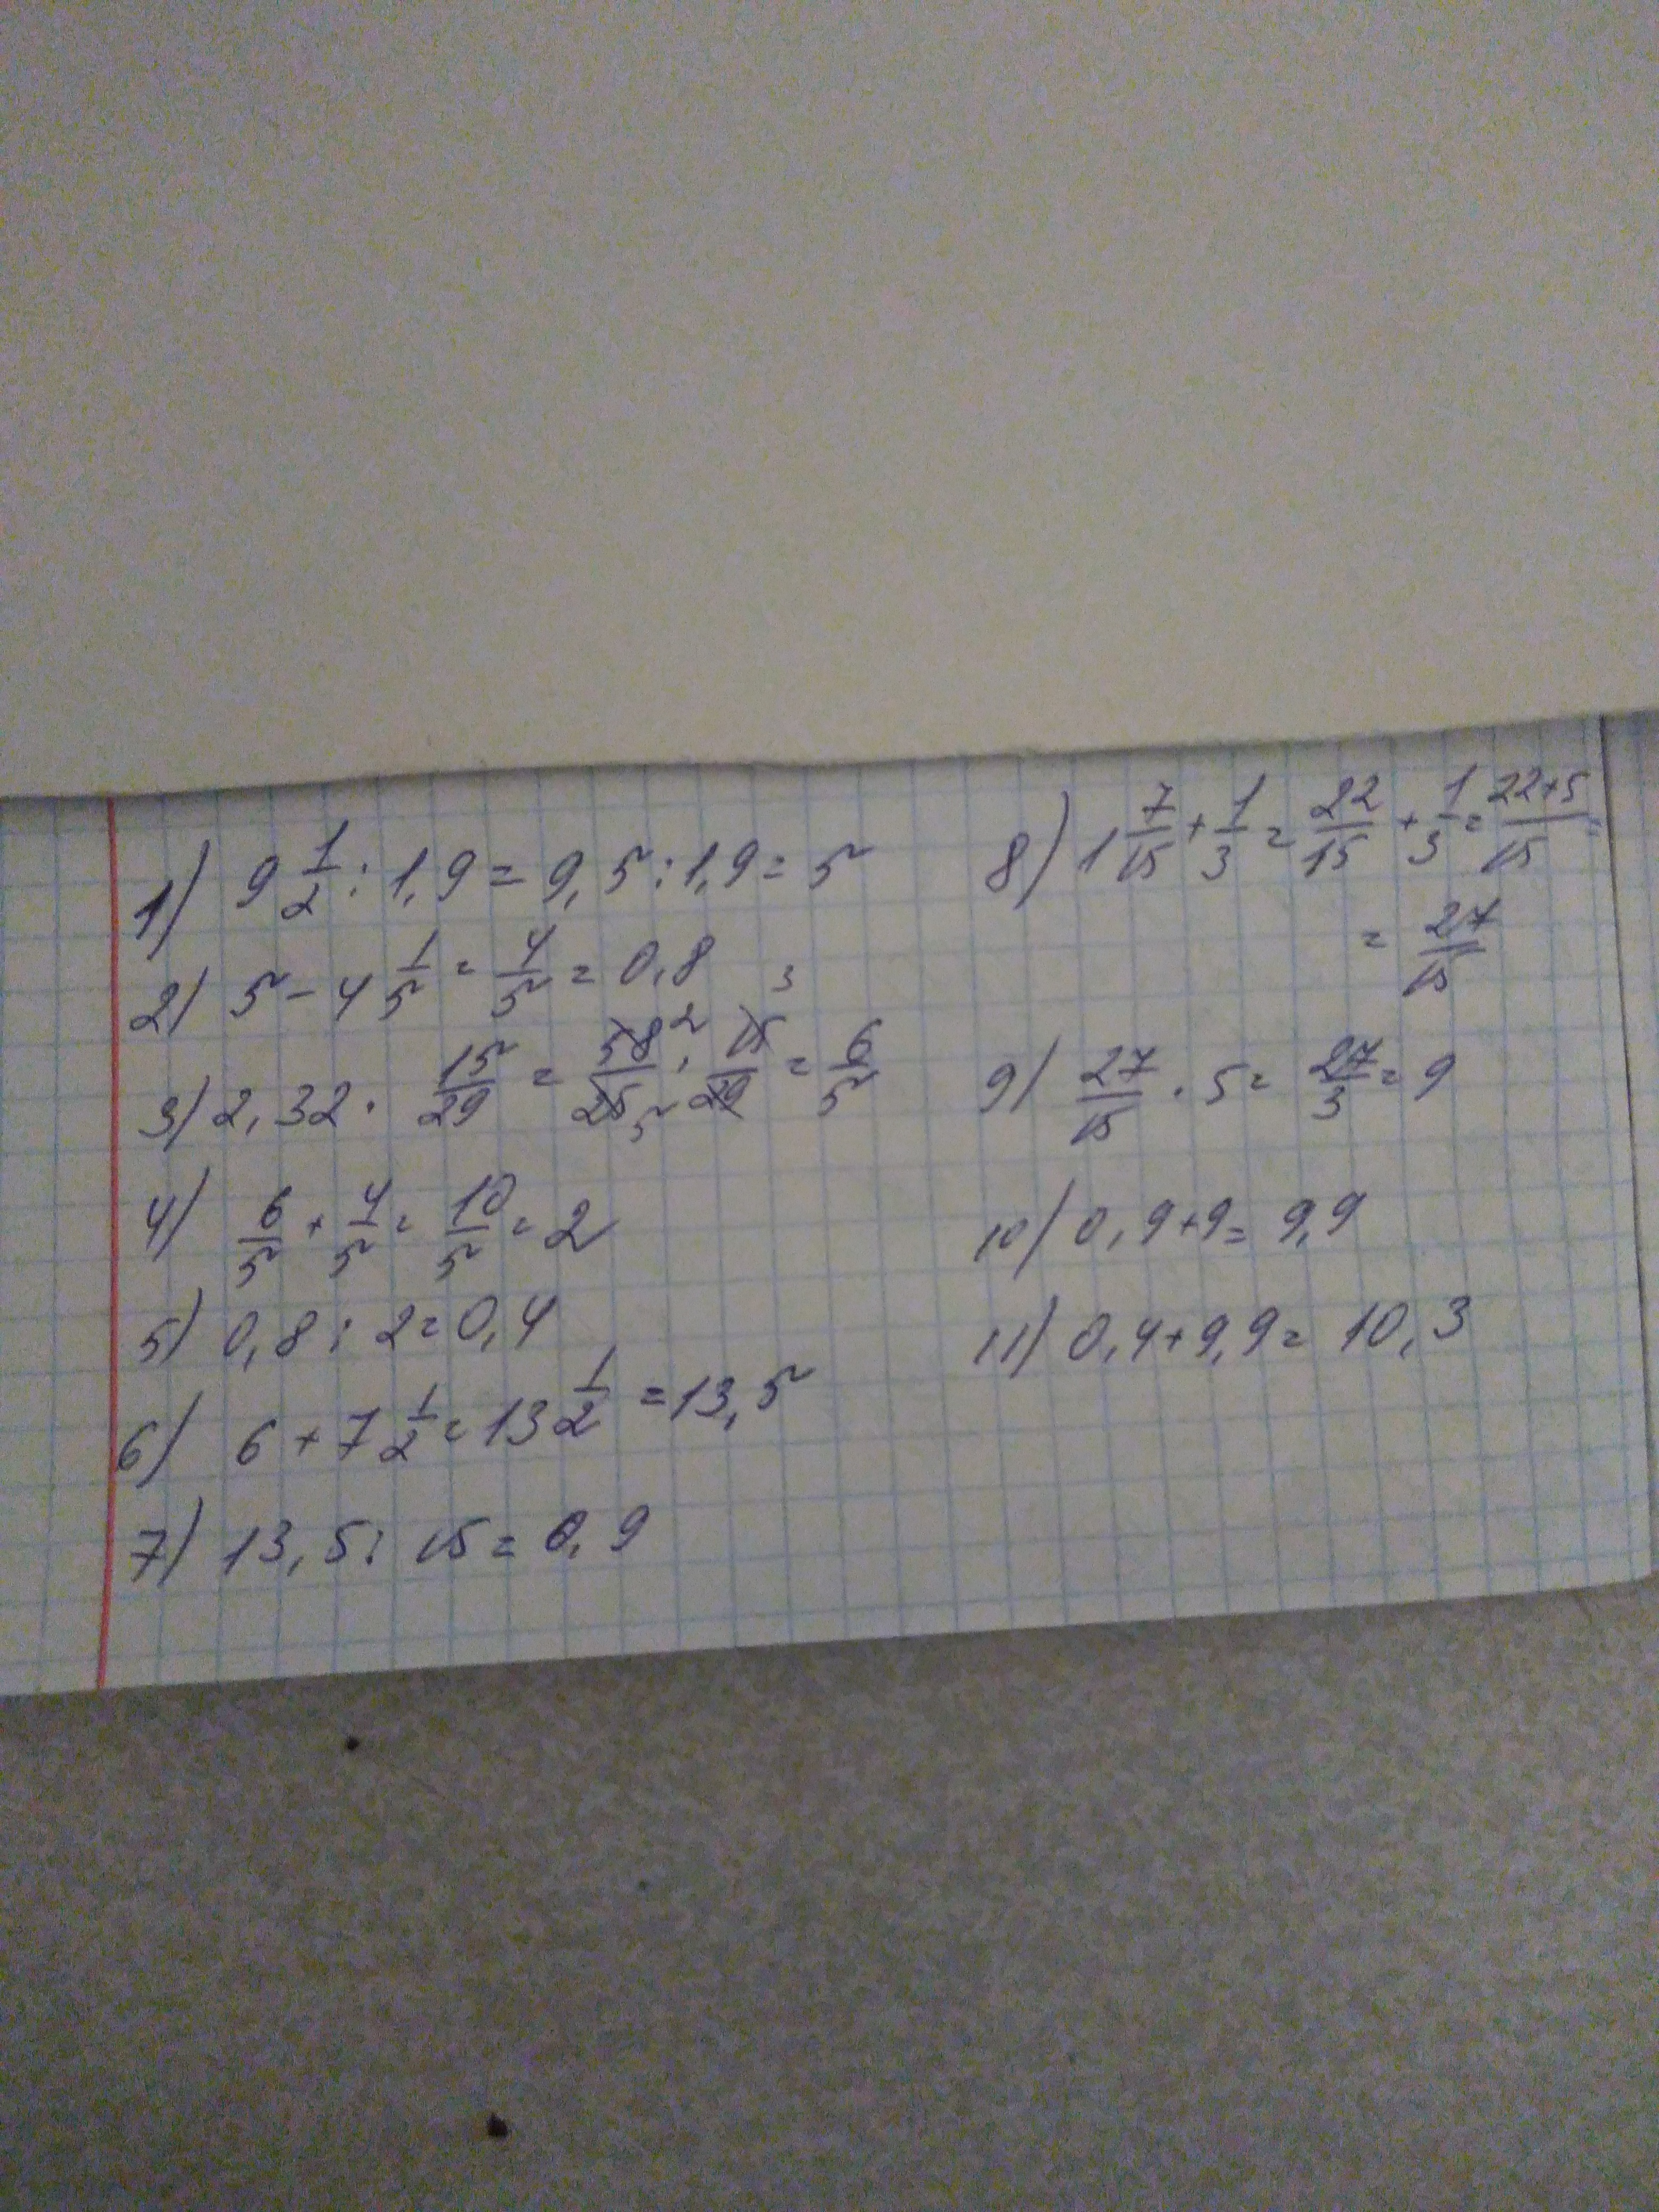 1) 9 1/2 : 1,9 = 9,5 : 1,9 = 5
2) 5 - 4 1/5 = 4/5 = 0,8
3) 2,32 · 15/29 = 58 2/25 5 · 15 3/29 = 6/5
4) 6/5 + 4/5 = 10/5 = 2
5) 0,8 : 2 = 0,4
6) 6 + 7 1/2 = 13 1/2 = 13,5
7) 13,5 : 15 = 0,9
8) 1 7/15 + 1/3 = 22/15 + 1/3 = 22+5/15 =
= 27/15
9) 27/15 · 5 = 27/3 = 9
10) 0,9 + 9 = 9,9
11) 0,4 + 9,9 = 10,3